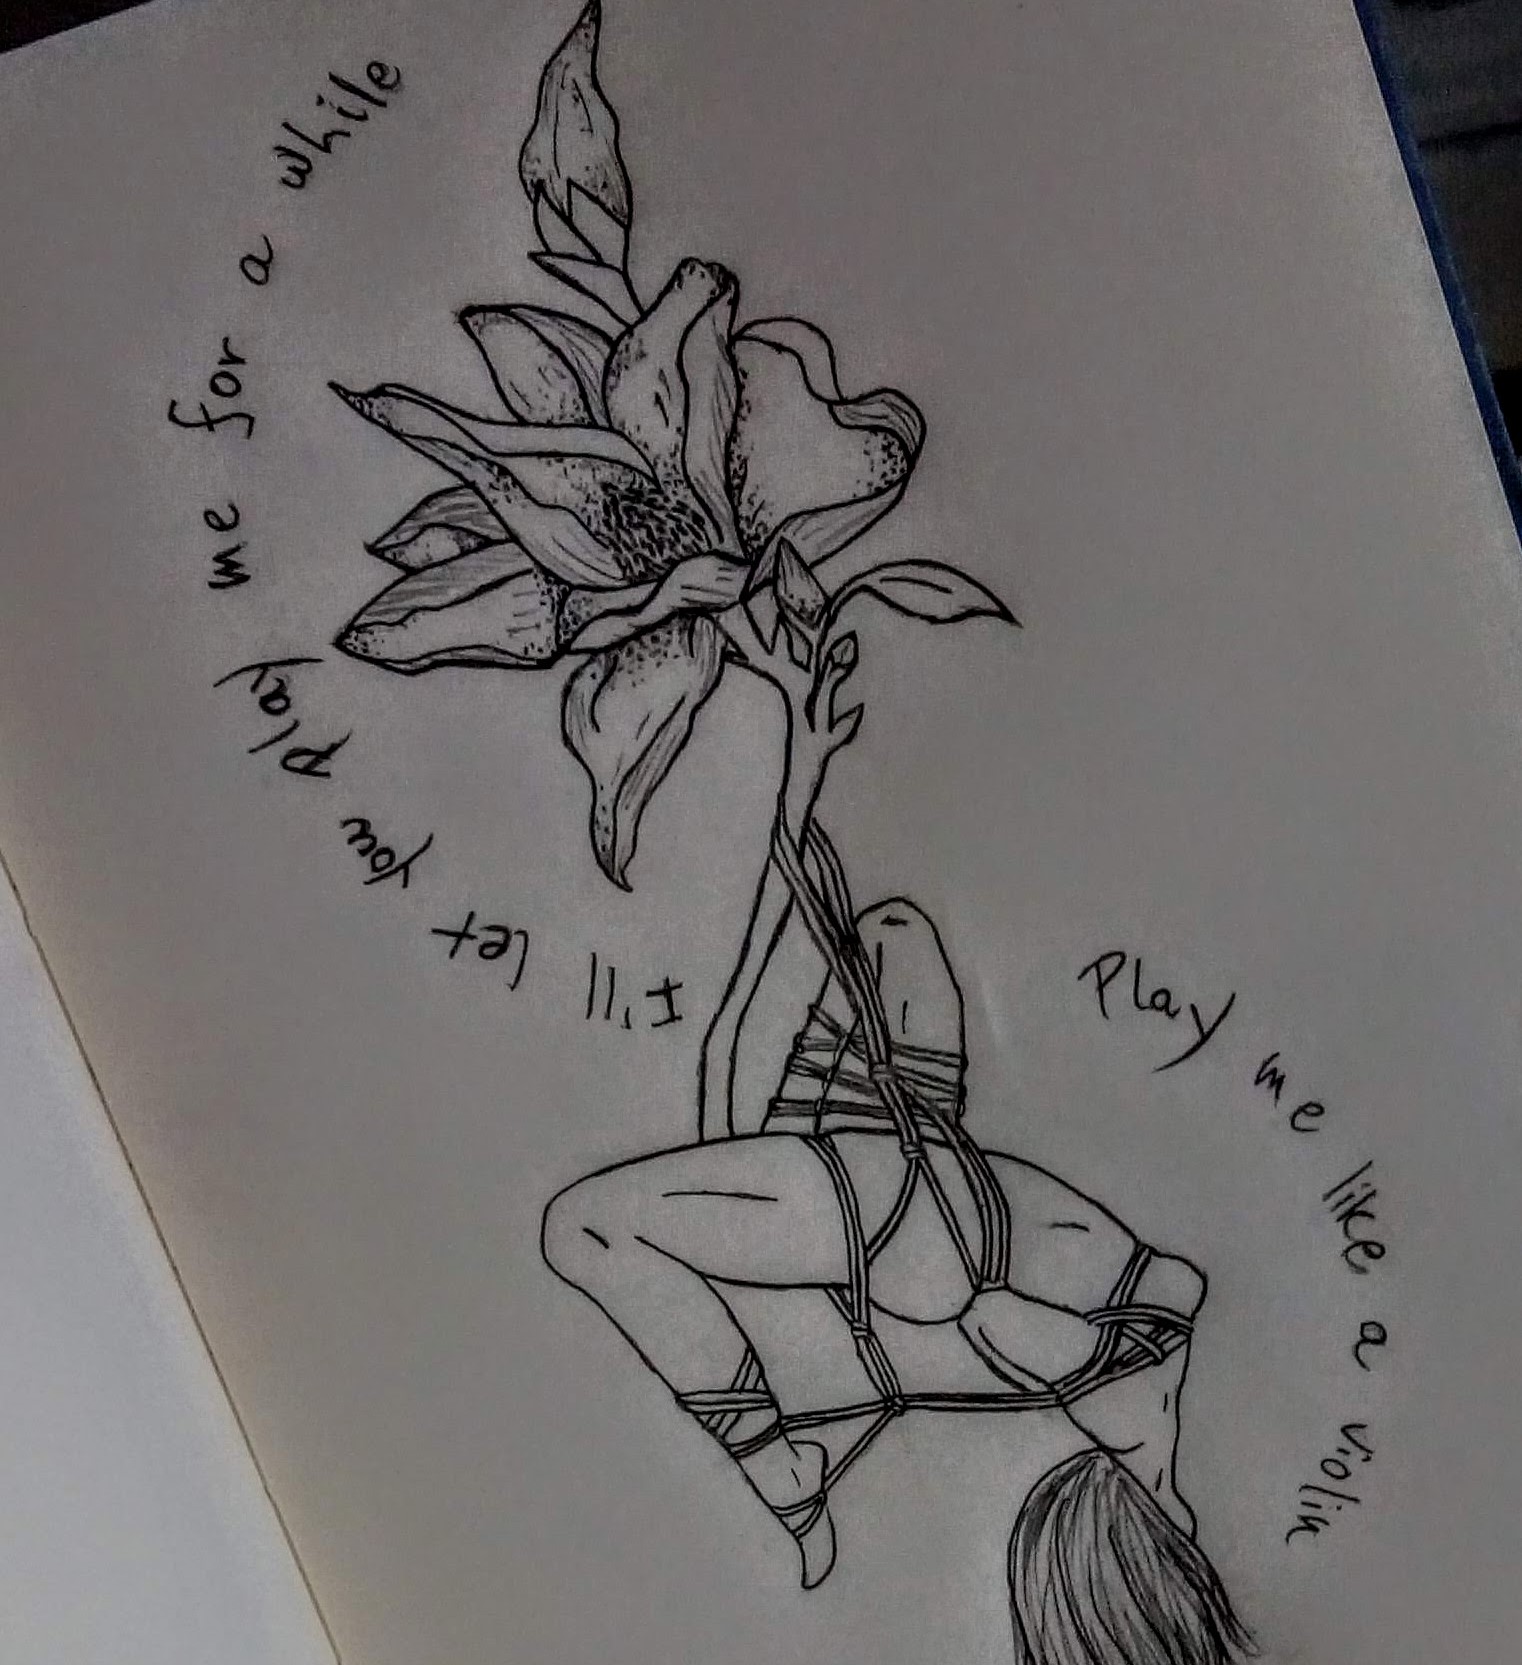 I'll let you play me for a while
Play me like a violin